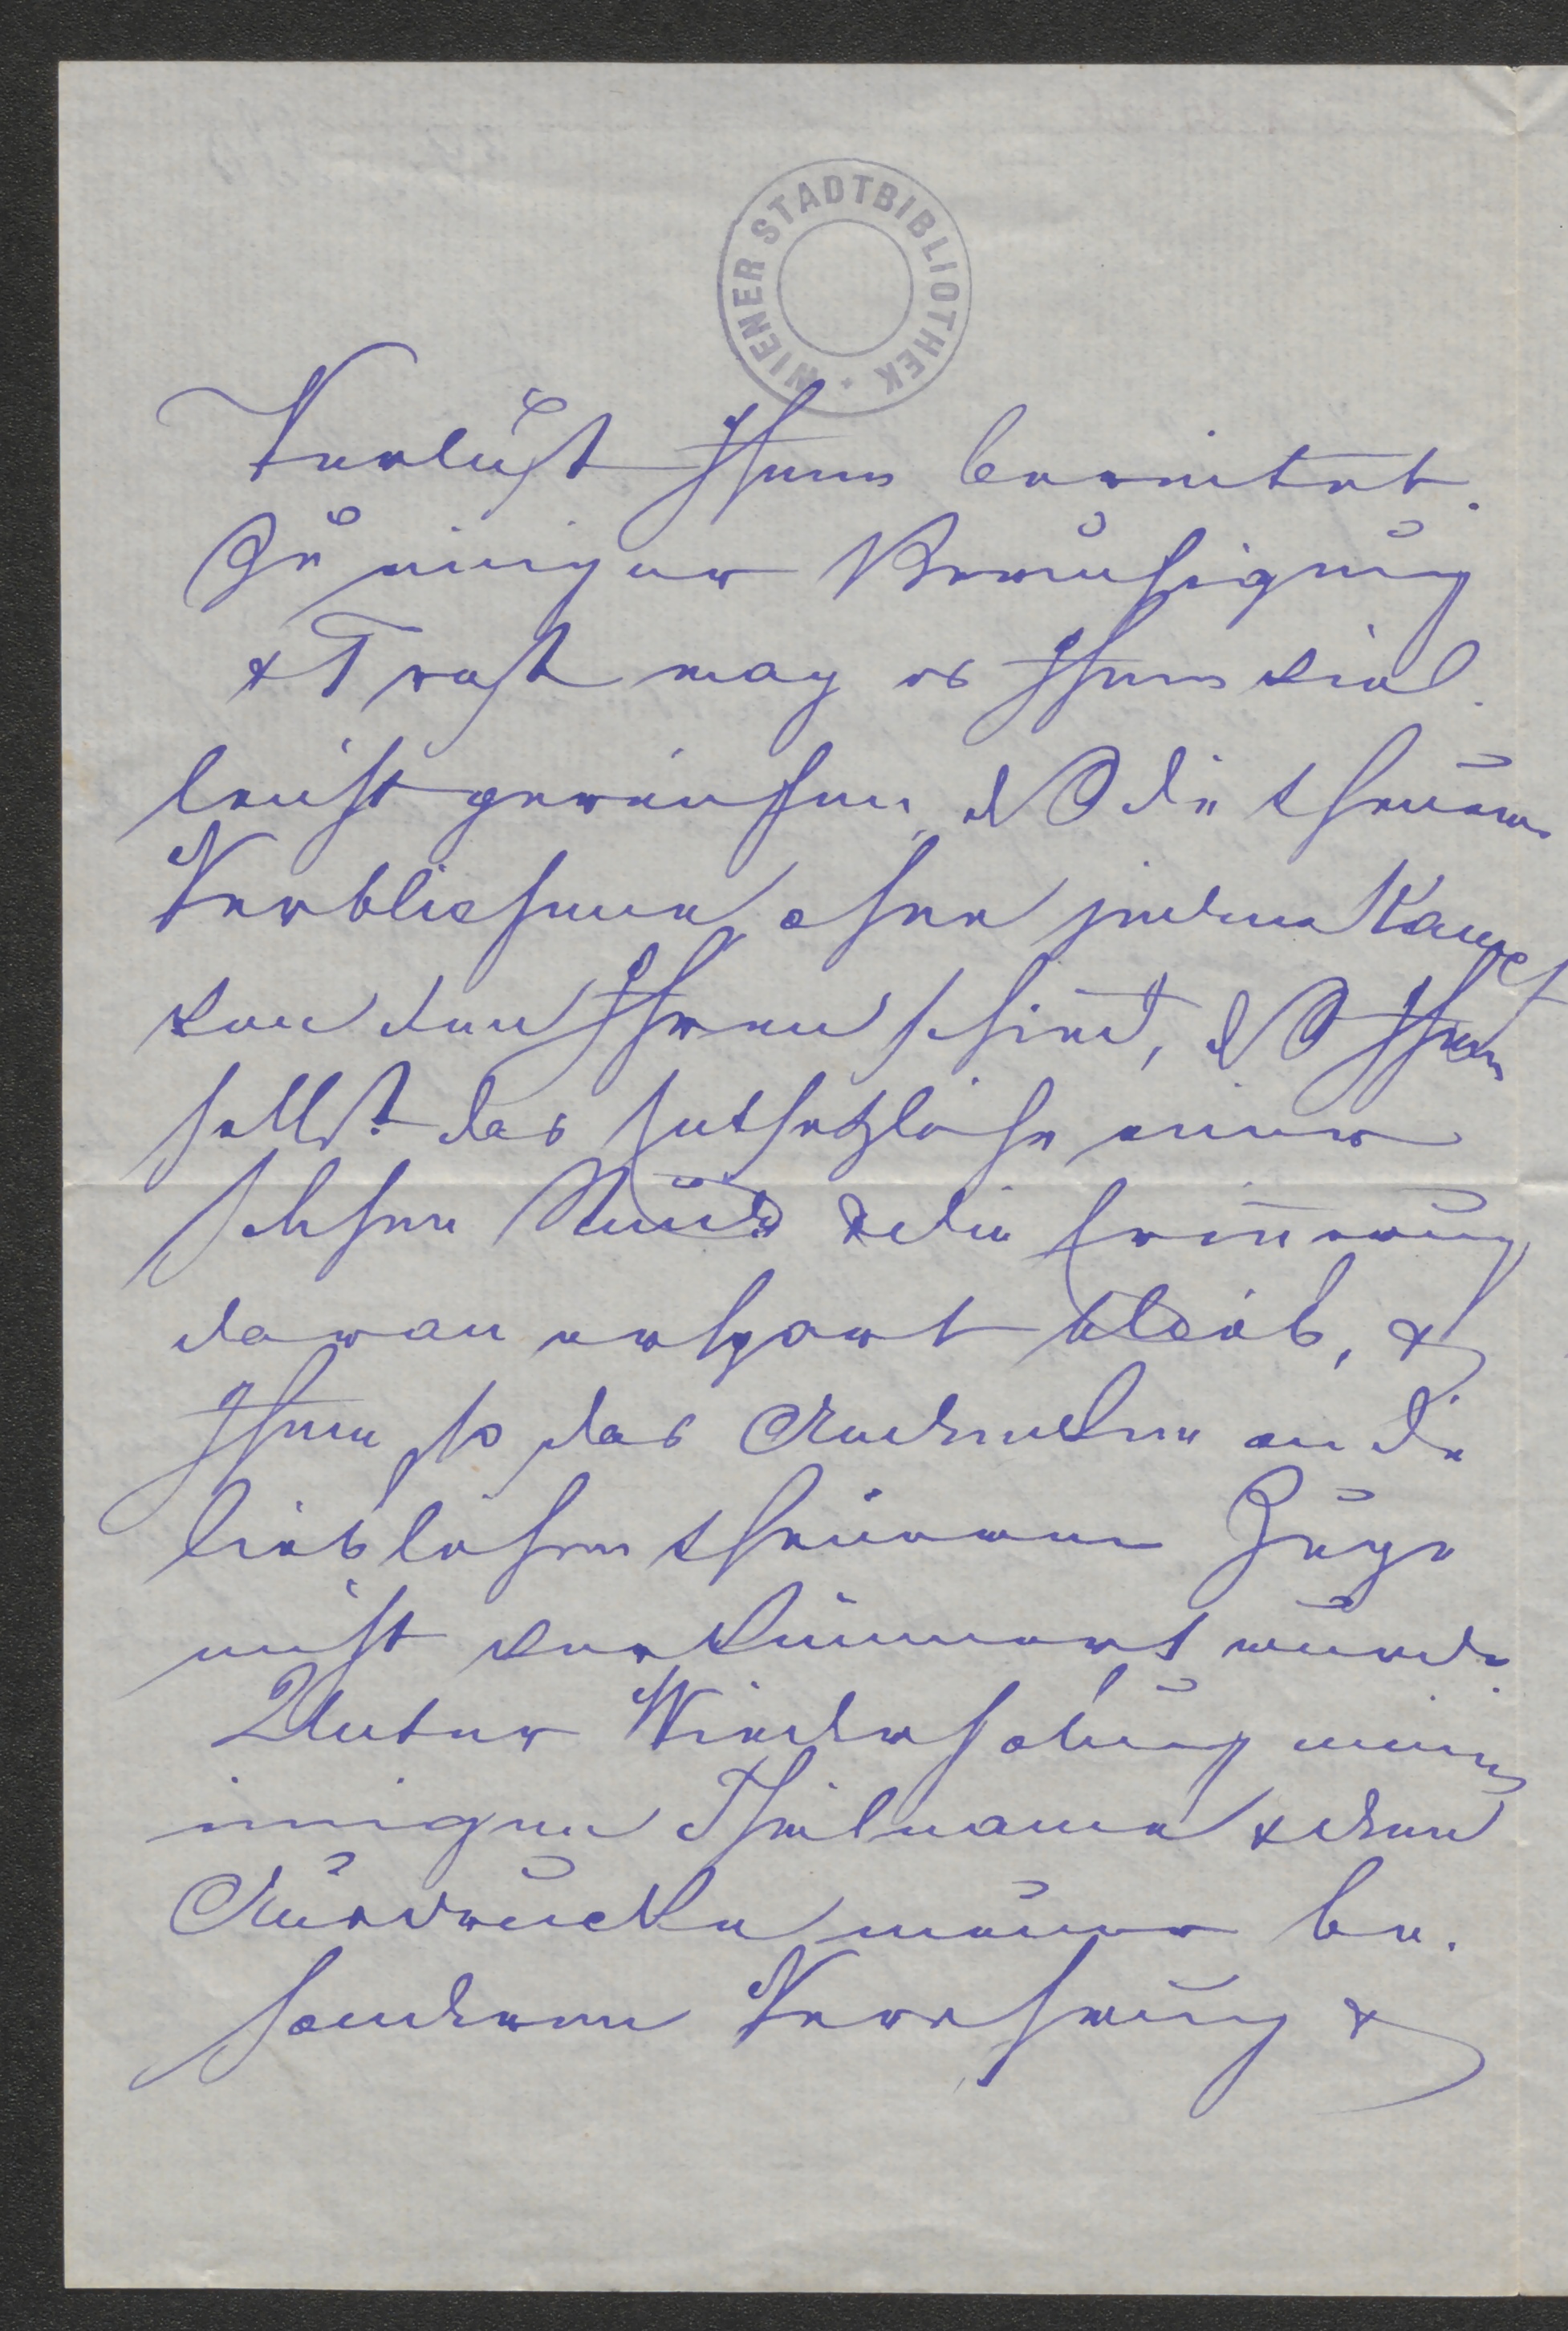 WIENER STADTBIBLIOTHEK
Verlust Ihnen bereitet.
Zu einiger Beruhigung
& Trost mag es Ihnen viel
leicht gereichen, dß die theuere
Verblichene ohne jeden Kampf
von den Ihren schied, dß Ihnen
selbst das Entsetzliche einer
solchen Stunde & die Erinerung
daran erspart blieb, &
Ihnen so das Andenken an die
lieblichen theueren Züge
nicht verkümmert wurde.
Unter Wiederholung meiner
innigen Theilname & dem
Ausdrucke meiner be-
sonderen Verehrung &